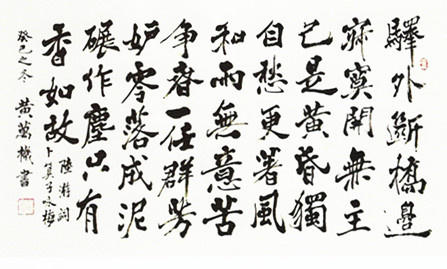 驛外斷橋邊
寂寞開無主
已是黄昏獨
自愁更著風
和雨無意苦
争春一任群芳
妒零落成泥
碾作塵只有
香如故
陸游詞
卜算子咏梅
癸巳之冬 黄萬機書